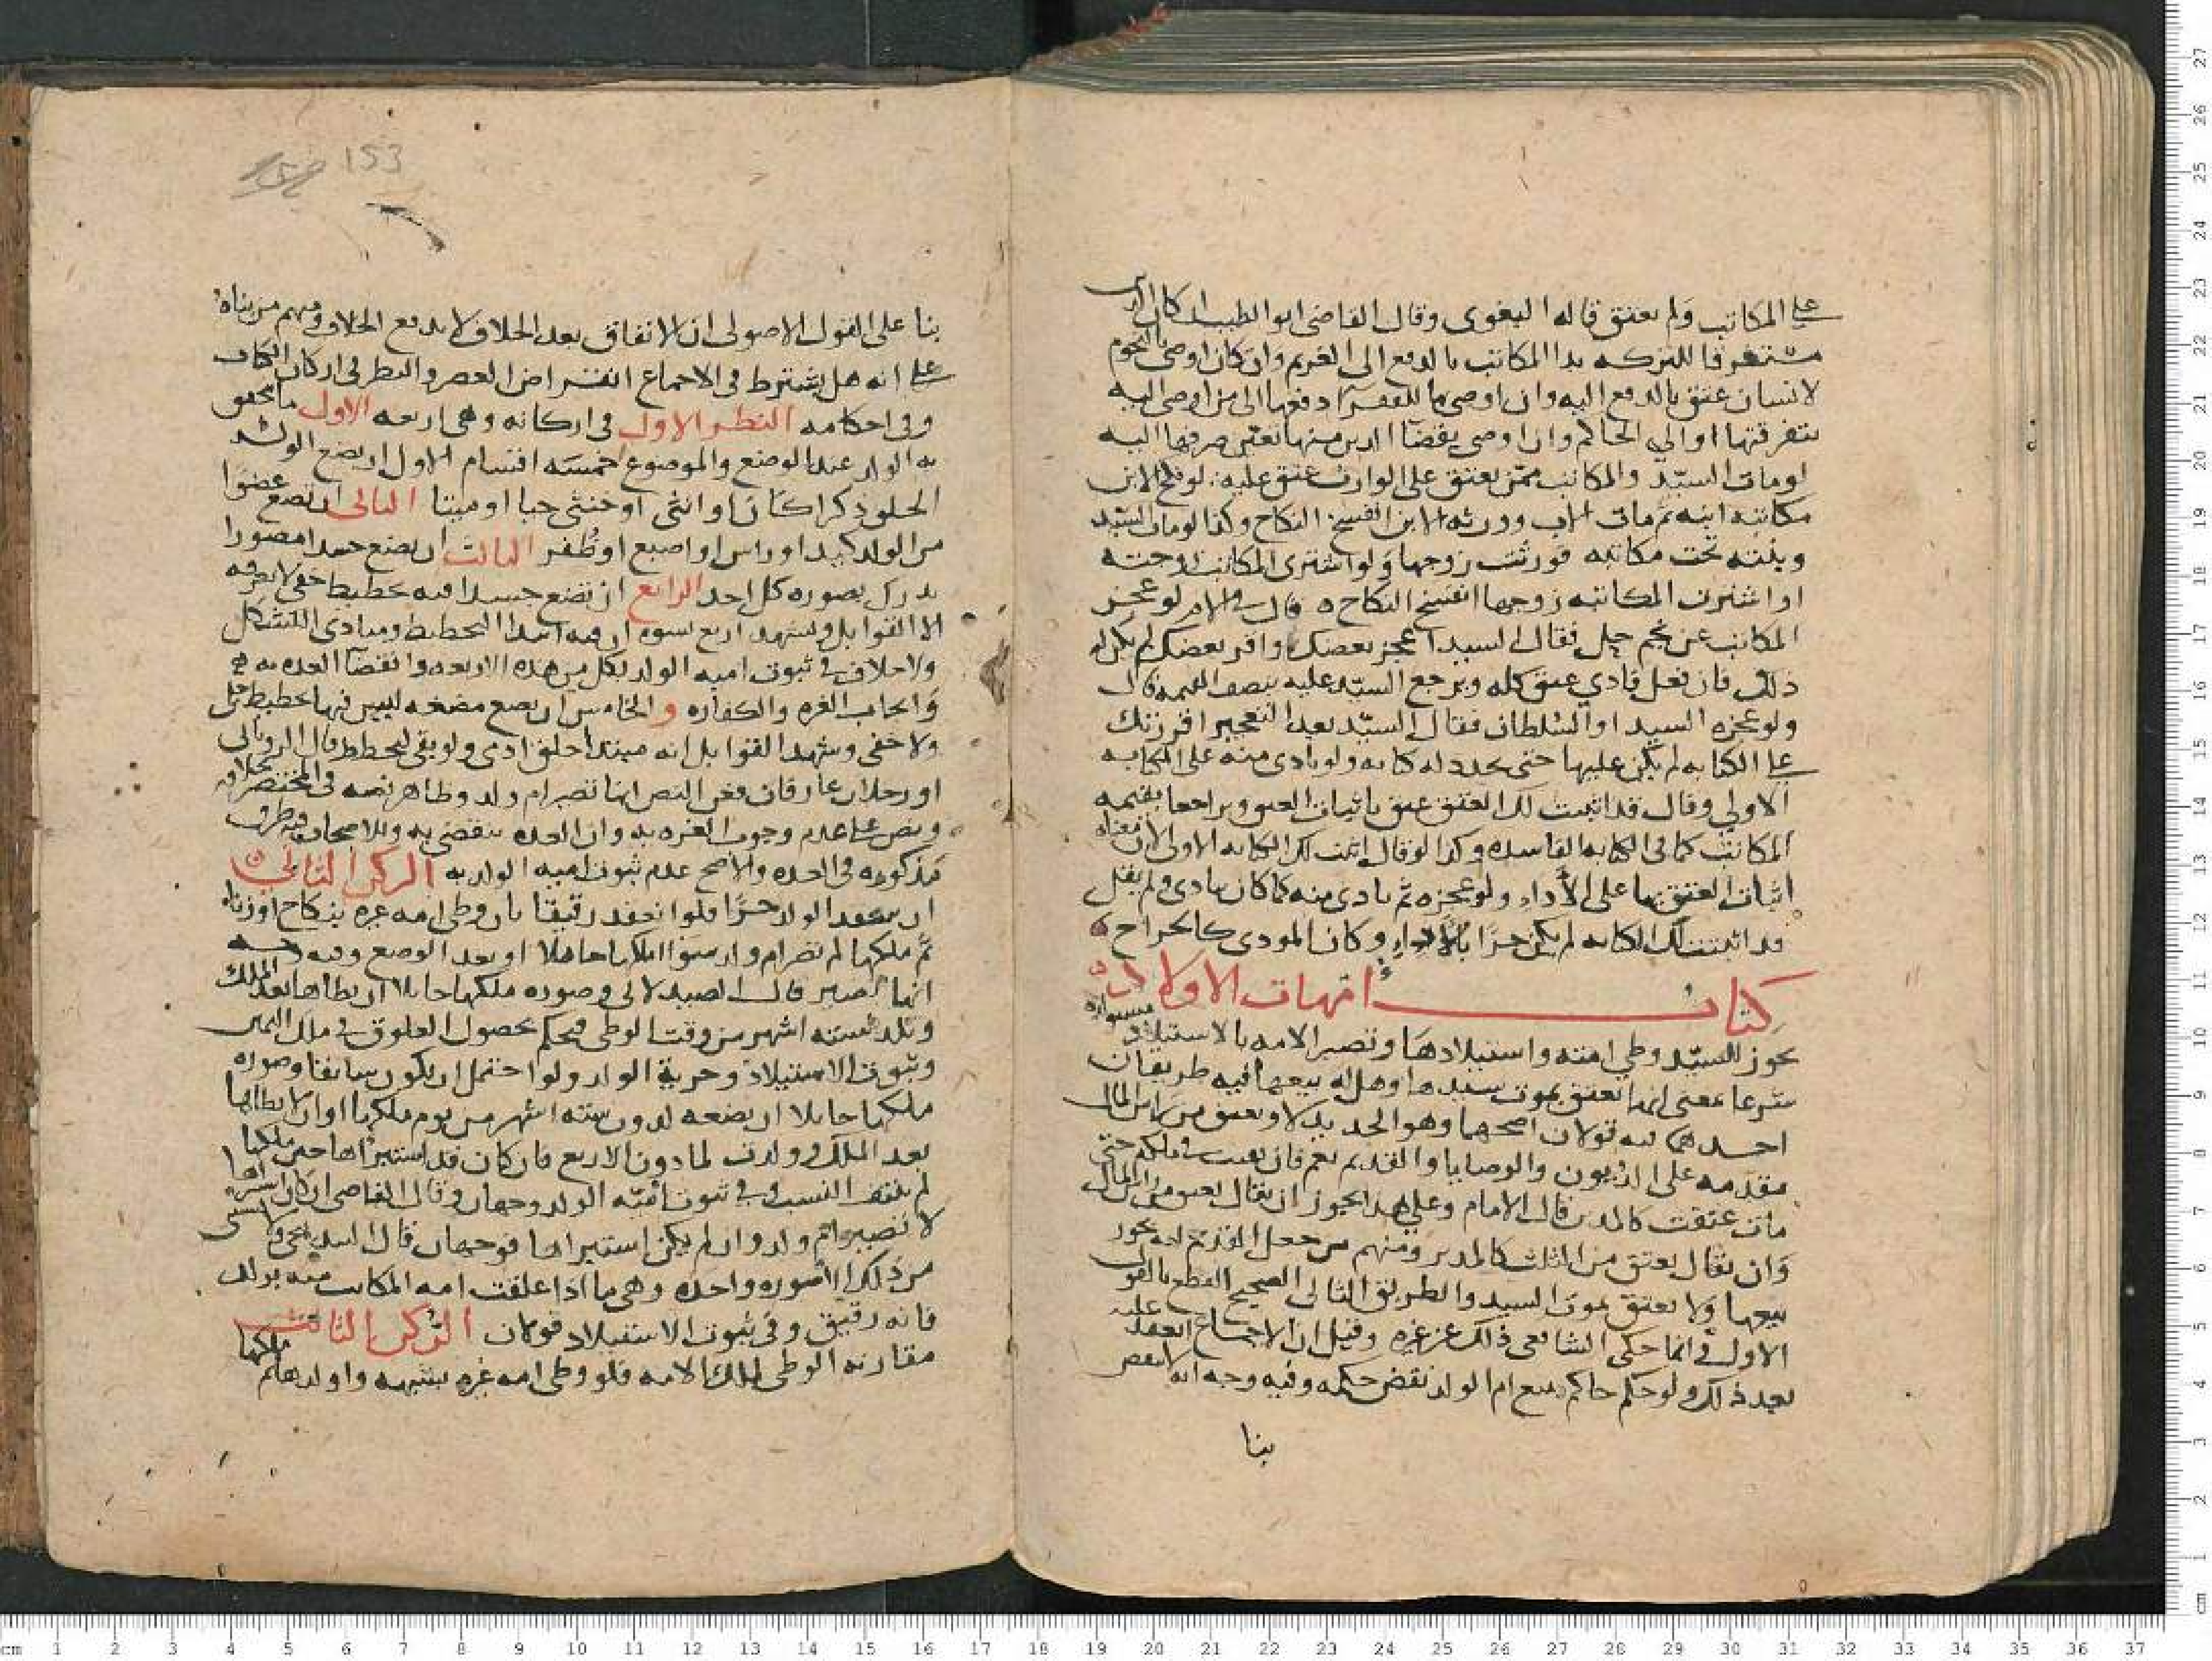 على المكاتب ولم يعتق قاله البغوى وقال القاضى ابو الطيب ان كان الدين
مستغرقا للتركه بدا المكاتب بالدفع الى الغريم وان كان اوصى بالنجوم
لانسان عتق بالدفع اليه وان اوصى بها للفقرآ دفعها الى من اوصى اليه
بتفرقتها او الي الحاكم وان اوصى بقضآ الدين منها تعين صرفها اليه
او مات السيّد والمكاتب ممّن يعتق على الوارث عتق عليه
مكاتبه ابنه ثم مات الاب وورثه الابن انفسخ النكاح وكذا لو مات السيّد
وبنته تحت مكاتبه فورثت زوجها ولو اشترى المكاتب زوجته
او اشترت المكاتبه زوجها انفسخ النكاح ه قال فى الام لو عجز
المكاتب عن نجم حل فقال لسيده اعجز بعضك واقر بعضك لم يكن له
ذلك فان فعل فادي عتق كله ويرجع السيّد عليه بنصف القيمه قال
ولو عجزه السيد او السلطان فقال السيّد بعد التعجيز اقررتك
على الكتابه لم يكن عليها حتى يجدد له كتابه ولو تادى منه على الكتابه
الاولي وقال قد اثبت لك العتق عتق باثبات العتق وتراجعا بقيمه
المكاتب كما فى الكتابه الفاسده وكذا لو قال اثبت لك الكتابه الاولى لان معناه
اثبات العتق بها على الأداء ولو عجزه ثم تادى منه كما كان يتادى ولم يقل
قد اثبت لك الكتابه لم يكن حرًا بالاداء وكان المودى كالخراج ه
كتاب امّهات الاولاد
يجوز للسيّد وطي امته واستيلادها وتصير الامه بالاستيلاد مستولده
شرعا بمعنى انها تعتق بموت سيدها وهل له بيعها فيه طريقان
احدهما فيه قولان اصحهما وهو الجديد لا وتعتق من راس المال
مقدمه على الديون والوصايا والقديم نعم فان بقيت فى ملكه حتى
مات عتقت كالمدبر قال الامام وعلى هذا يجوز ان يقال تعتق من راس المال
وان يقال تعتق من الثلث كالمدبر ومنهم من جعل القديم انه يجوز
بيعها ولا تعتق بموت السيد والطريق الثانى الصحيح القطع بالقول
الاول وانما حكى الشافعى ذلك عن غيره وقيل ان الاجماع انعقد عليه
بعد ذلك ولو حكم حاكم ببيع ام الولد نقض حكمه وفيه وجه انه لا ينقض
بنا
153
بنا على القول الاصولى ان الاتفاق بعد الخلاف لا يدفع الخلاف ومنهم من بناه
على انه هل يشترط فى الاجماع انقراض العصر والنظر فى اركان الكتاب
وفى احكامه النظر الاول فى اركانه وهى اربعه الاول ما تحقق
به الولد عند الوضع والموضوع خمسه اقسام الاول ان تضع الولد
الحلو ذكرا كان او انثى او خنثى حيا او ميتا الثانى ان تضع عضوا
من الولد كيد او راس او اصبع او ظفر الثالث ان تضع جسدا مصورا
يدرك تصوره كل احد الرابع ان تضع جسدا فيه تخطيط خفى لا يعرفه
الا القوابل ويشهد اربع نسوه ان فيه ابتدا التخطيط ومبادى التشكل
ولا خلاف فى ثبوت اميه الولد بكل من هذه الاربعه وانقضآ العده به
وايجاب الغره والكفاره و الخامس ان تضع مضغه ليس فيها تخطيط جلى
ولا خفى ويشهد القوابل انه مبتدا خلق ادمى ولو بقى لتخطط قال الرويانى
او رجلان عارفان فعن النص انها تصير ام ولد وظاهر نصه فى المختصر خلافه
ونص على عدم وجوب الغره به وان العده تنقضى به وللاصحاب فيه طرق
مذكوره فى العده والاصح عدم ثبوت اميه الولد به الركن الثانى
ان ينعقد الولد حرًا فلو انعقد رقيقا بان وطى امه غيره بنكاح او زنا
ثم ملكها لم تصر ام ولد سوا ملكها حاملا او بعد الوضع وفيه
انها تصير قال الصيدلانى وصوره ملكها حاملا ان يطاها بعد الملك
وتلد لسته اشهر من وقت الوطى فيحكم بحصول العلوق فى ملك اليمين
وثبوت الاستيلاد وحرية الولد ولو احتمل ان يكون سابقا وصوره
ملكها حاملا ان تضعه لدون سته اشهر من يوم ملكها او ان لا يطاها
بعد الملك وولدت لما دون الاربع فان كان قد استبرأها حين ملكها
لم يلحقه النسب وفى ثبوت اميّه الولد وجهان وقال القاضى ان كان استبراها
لا تصير ام ولد وان لم يكن استبراها فوجهان قال السنجى ولا يستثنى
من ذلك الا صوره واحده وهى ما اذا علقت امه المكاتب منه بولد
فانه رقيق وفى ثبوت الاستيلاد قولان الركن الثالث
مقارنه الوطى لملك الامه فلو وطى امه غيره بشبهه واولدها ثم ملكها